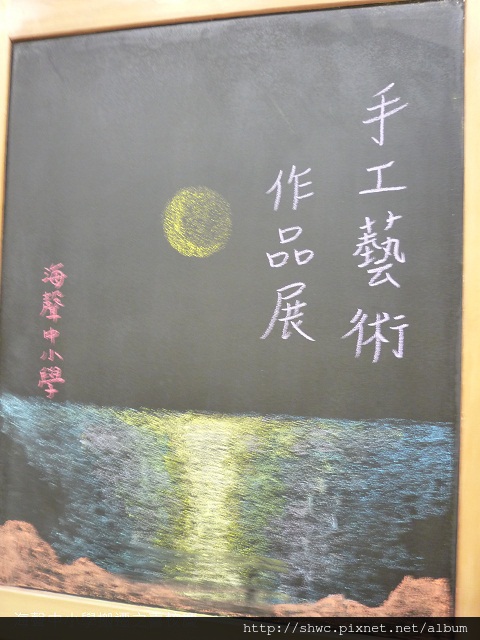 手工藝術
作品展
海聲中小學
http://shwc.pixnet.net/album